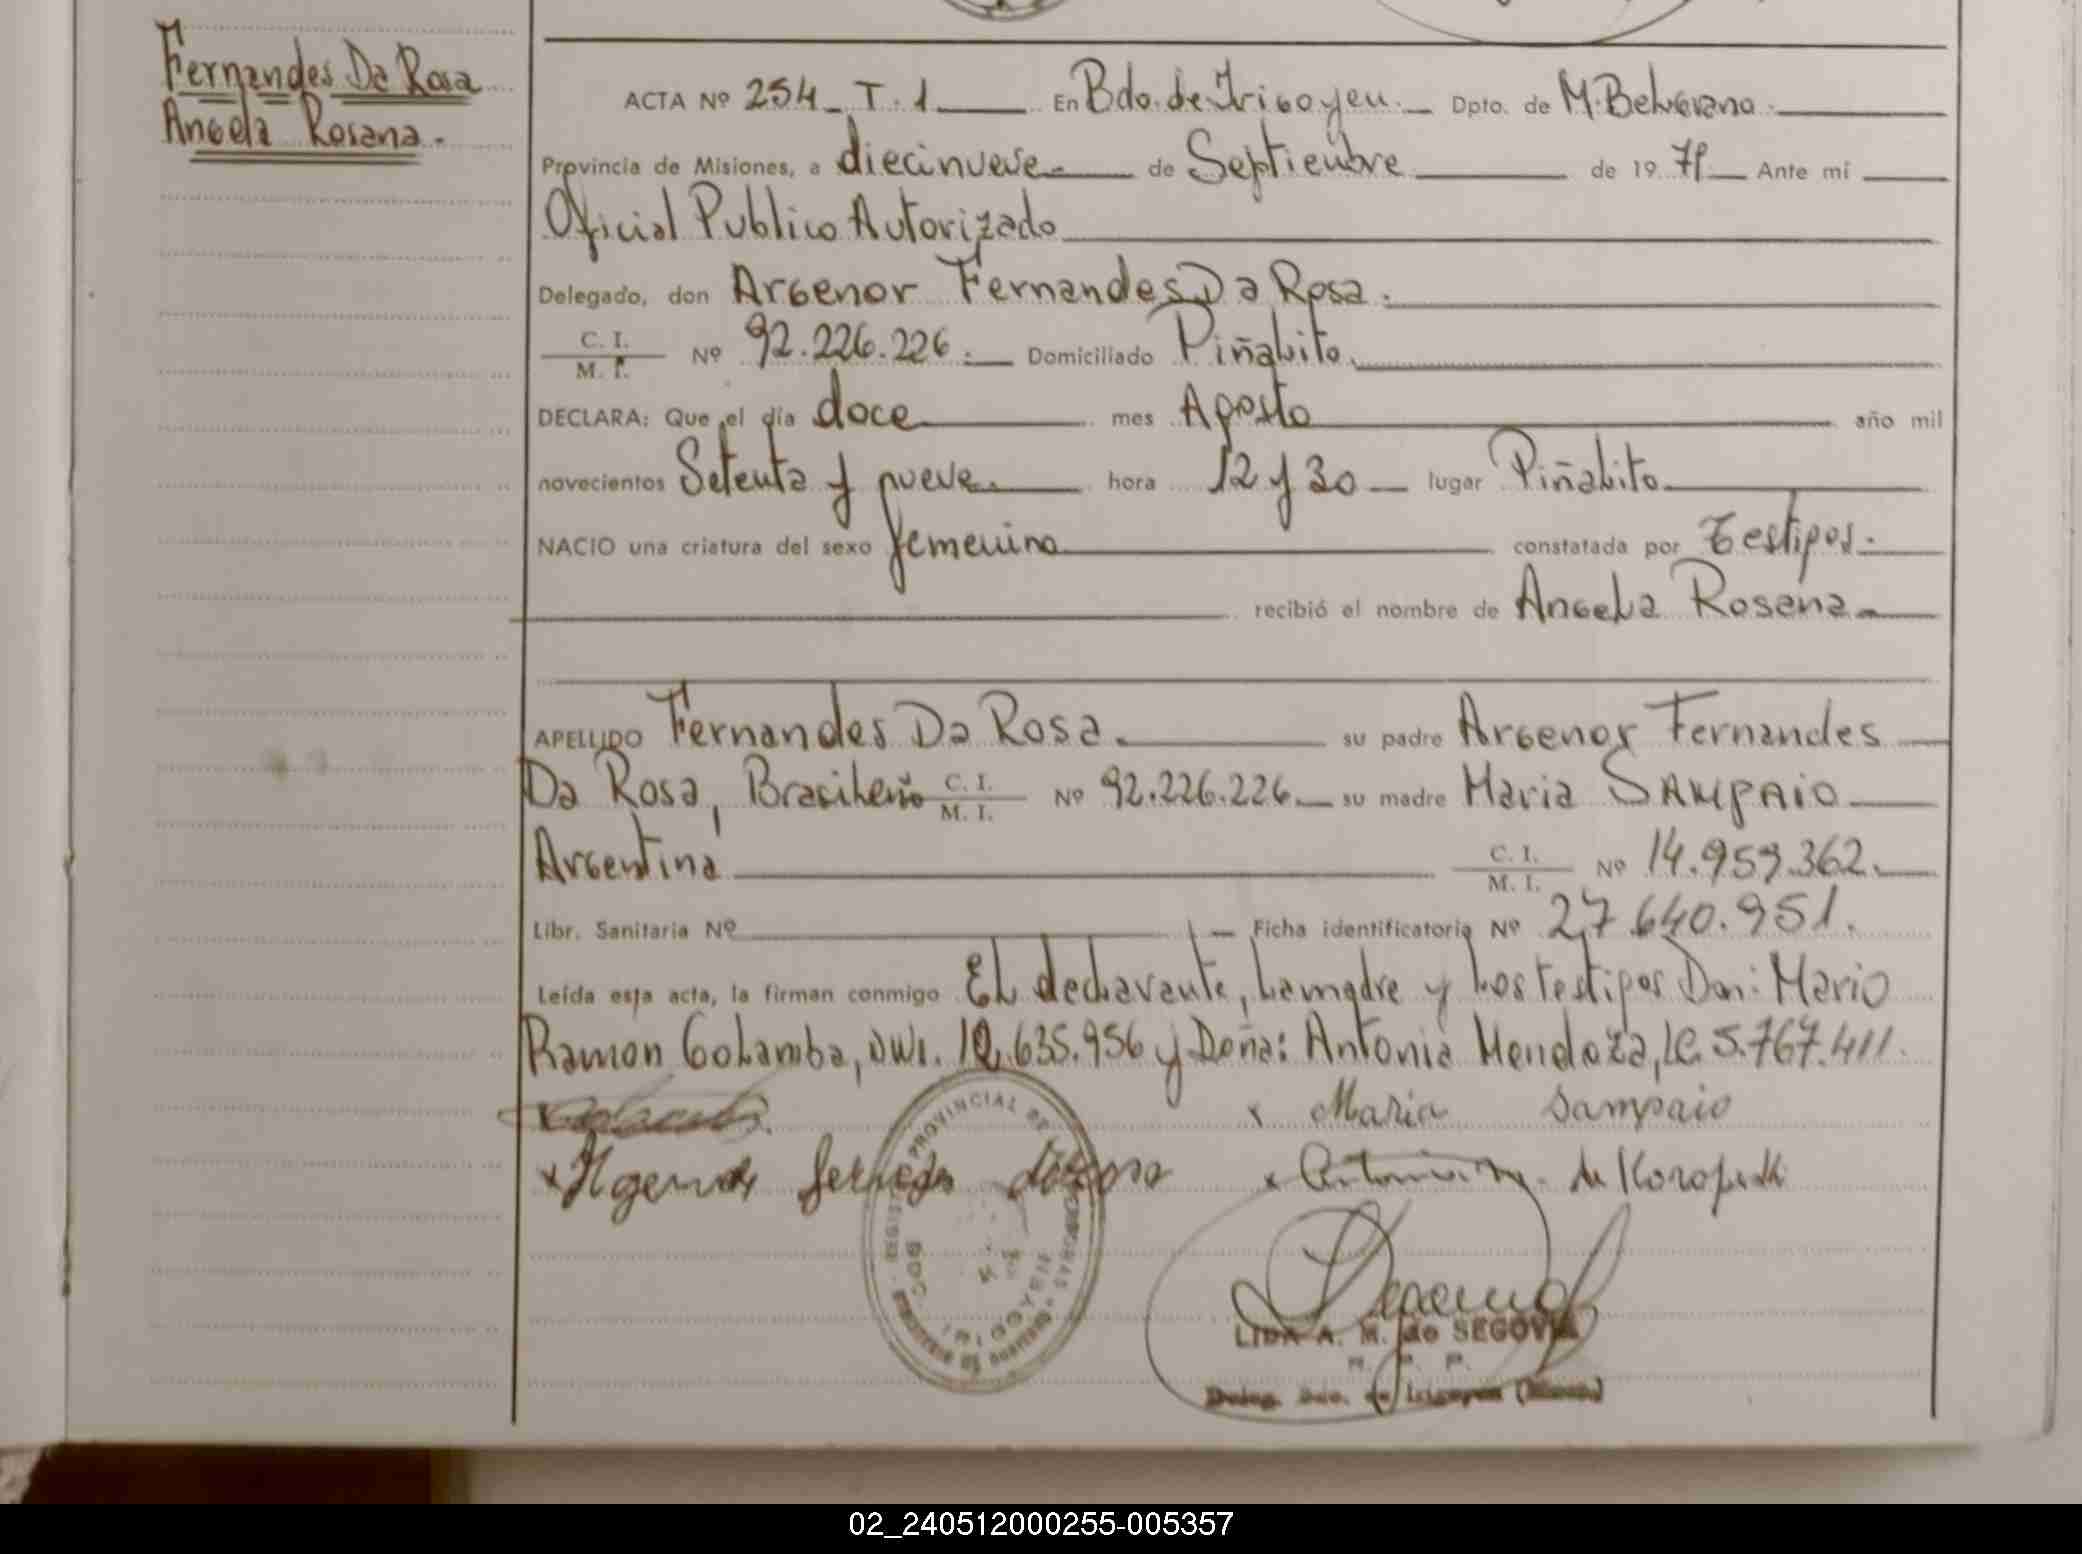 Fernandes Da Rosa
Angela Rosana.-
ACTA Nº 254_ T. 1 En Bdo. de Irigoyen. Dpto. de M. Belgrano.
Provincia de Misiones, a diecinueve de Septiembre de 19 79 Ante mí
Oficial Publico Autorizado
Delegado, don Argenor Fernandes Da Rosa.
C. I.
M. I. Nº 92.226.226. Domiciliado Piñalito.
DECLARA: Que el día doce mes Agosto año mil
novecientos Setenta y nueve hora 12 y 30 lugar Piñalito
NACIO una criatura del sexo femenino constatada por Testigos.
recibió el nombre de Angela Rosana
APELLIDO Fernandes Da Rosa. su padre Argenor Fernandes
Da Rosa, Brasileño C. I. M. I. Nº 92.226.226 su madre Maria SAMPAIO
Argentina C. I. M. I. Nº 14.959.362.
Libr. Sanitaria Nº Ficha identificatoria Nº 27.640.951.
Leída esta acta, la firman conmigo El declarante, La madre y Los testigos Don: Mario
Ramon Golamba, DNI. 12.635.956 y Doña: Antonia Mendoza, LC. 5.767.411.
x Maria Sampaio
x Antonia M. de
REGISTRO PROVINCIAL DE LAS PERSONAS
LIDA A. M. de SEGOVIA
Deleg. Bdo. de Irigoyen (Mnes)
02_240512000255-005357